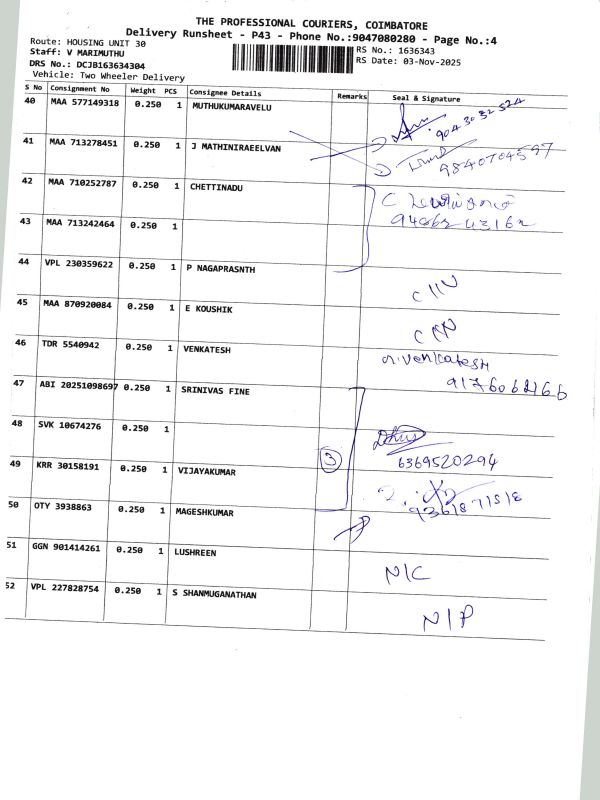 THE PROFESSIONAL COURIERS, COIMBATORE
Delivery Runsheet - P43 - Phone No.:9047080280 - Page No.:4
Route: HOUSING UNIT 30
RS No.: 1636343
Staff: V MARIMUTHU
RS Date: 03-Nov-2025
DRS No.: DCJB163634304
Vehicle: Two Wheeler Delivery
S No Consignment No Weight PCS Consignee Details Remarks Seal & Signature
40 MAA 577149318 0.250 1 MUTHUKUMARAVELU
41 MAA 713278451 0.250 1 J MATHINIRAEELVAN 9840704597
42 MAA 710252787 0.250 1 CHETTINADU C
43 MAA 713242464 0.250 1
44 VPL 230359622 0.250 1 P NAGAPRASNTH
45 MAA 870920084 0.250 1 E KOUSHIK
46 TDR 5540942 0.250 1 VENKATESH n.venkatesh
9176062166
47 ABI 20251098697 0.250 1 SRINIVAS FINE
48 SVK 10674276 0.250 1
6369520294
49 KRR 30158191 0.250 1 VIJAYAKUMAR 3
50 OTY 3938863 0.250 1 MAGESHKUMAR
51 GGN 901414261 0.250 1 LUSHREEN N/C
52 VPL 227828754 0.250 1 S SHANMUGANATHAN N/P